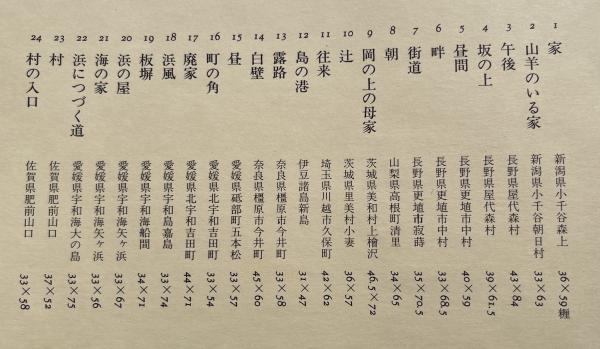 1 家 新潟県小千谷森上 36×59糎
2 山羊のいる家 新潟県小千谷朝日村 33×63
3 午後 長野県屋代森村 43×84
4 坂の上 長野県屋代森村 39×61.5
5 昼間 長野県更埴市中村 40×59
6 畔 長野県更埴市中村 33×68.5
7 街道 長野県更埴市寂蒔 35×70.5
8 朝 山梨県高根町清里 34×65
9 岡の上の母家 茨城県美和村上檜沢 46.5×72
10 辻 茨城県里美村小妻 36×57
11 往来 埼玉県川越市久保町 42×62
12 島の港 伊豆諸島新島 31×47
13 露路 奈良県橿原市今井町 33×58
14 白壁 奈良県橿原市今井町 45×60
15 昼 愛媛県砥部町五本松 33×57
16 町の角 愛媛県北宇和吉田町 33×54
17 廃家 愛媛県北宇和吉田町 44×71
18 浜風 愛媛県宇和島嘉島 33×74
19 板塀 愛媛県宇和海船間 34×71
20 浜の屋 愛媛県宇和海矢ヶ浜 33×67
21 海の家 愛媛県宇和海矢ヶ浜 33×56
22 浜につづく道 愛媛県宇和海大の島 33×75
23 村 佐賀県肥前山口 37×52
24 村の入口 佐賀県肥前山口 33×58